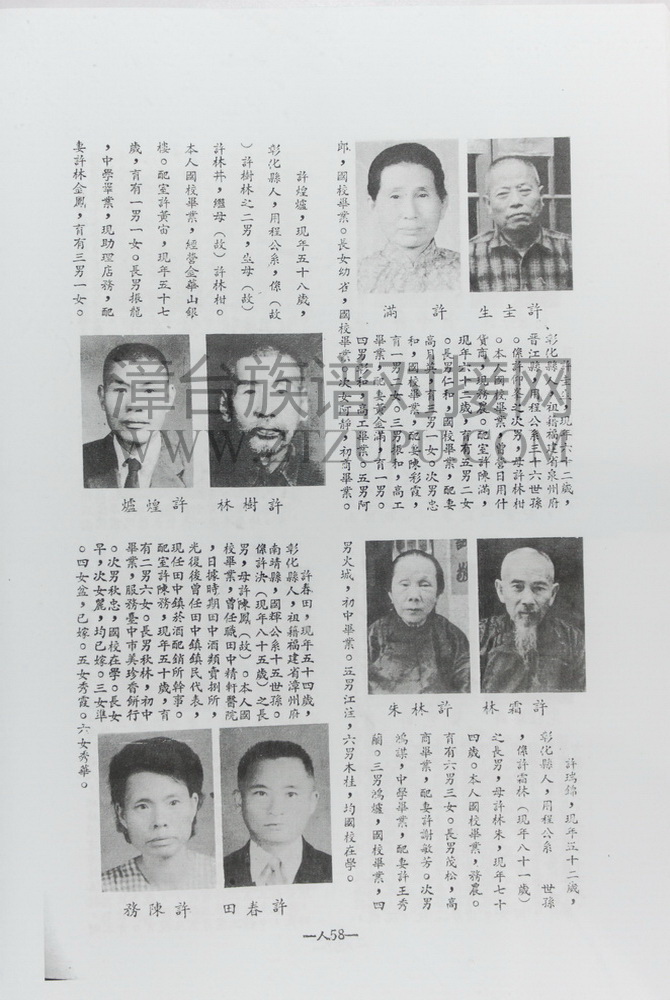 許圭生
許滿
許圭生，現年六十二歲，
彰化縣人，祖籍福建省泉州府
晉江縣，用程公系三十六世孫
。係許仰峯之次男，母許林柑
。本人國校畢業，曾營日用什
貨商，現務農。配室許陳滿，
現年六十二歲，育有五男二女
。長男仁和，國校畢業，配妻
高月英，育有三男一女。次男忠
和，國校畢業，配妻陳彩霞，
育有一男二女。三男振和，高工
畢業，配妻黃金滿，育有一男。
四男勝和，高工畢業。五男阿
郎，國校畢業。長女幼雀，國校畢業。次女阿靜，初商畢業。
許煌爐，現年五十八歲，
彰化縣人，用程公系，係（故
）許樹林之二男，生母（故）
許林茾，繼母（故）許林柑。
本人國校畢業，經營金華山銀
樓。配室許黃宙，現年五十七
歲，育有一男一女。長男振龍
，中學畢業，現助理店務，配
妻許林金鳳，育有三男一女。
許樹林
許煌爐
許霜林
許林朱
許瑞錦，現年五十二歲，
彰化縣人，用程公系　世孫
，係許霜林（現年八十一歲）
之長男，母許林朱，現年七十
四歲。本人國校畢業，務農。
育有六男三女。長男茂松，高
商畢業，配妻許謝敏芳。次男
鴻謀，中學畢業，配妻許王秀
蘭。三男鴻爐，國校畢業，四
男火城，初中畢業。五男江注，六男木桂，均國校在學。
許春田，現年五十四歲，
彰化縣人，祖籍福建省漳州府
南靖縣，國輝公系十五世孫。
係許決（現年八十五歲）之長
男，母許陳鳳（故）。本人國
校畢業，曾任職田中精軒醫院
，日據時期田中酒類賣捌所，
光復後曾任田中鎮鎮民代表，
現任田中鎮菸酒配銷所幹事。
配室許陳務，現年五十歲，育
有二男六女。長男秋林，初中
畢業，服務臺中市美珍香餅行
。次男秋忠，國校在學。長女
早，次女麗，均已嫁。三女準
。四女盆，已嫁。五女秀霞。六女秀華。
許春田
許陳務
—人58—
漳台族谱对接网